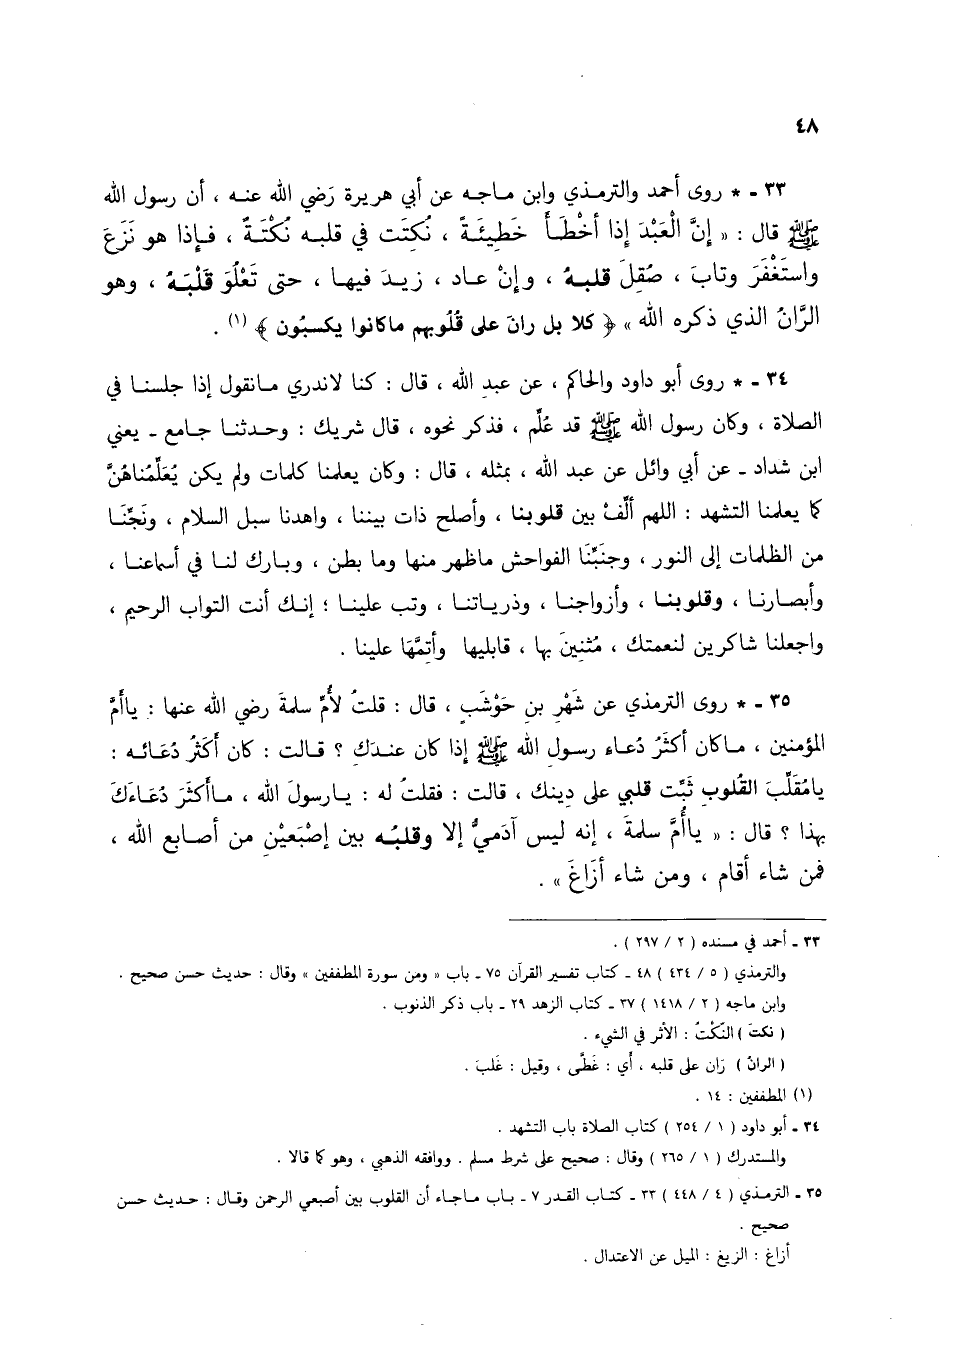 ٤٨
٣٣ - * روى أحمد والترمذي وابن ماجه عن أبي هريرة رَضي الله عنه ، أن رسول الله
ﷺ قال : « إنَّ الْعَبْدَ إذا أخْطَأَ خَطِيئَةً ، نُكِتَت في قلبه نُكْتَةٌ ، فإذا هو نَزَعَ
واستَغْفَرَ وتابَ ، صُقِلَ قلبهُ ، وإنْ عاد ، زيدَ فيها ، حتى تَعْلُوَ قَلْبَهُ ، وهو
الرَّانُ الذي ذكره الله » ﴿ كلا بل رانَ على قُلُوبهم ماكانوا يكسبُون ﴾ (١) .
٣٤ - * روى أبو داود والحاكم ، عن عبدِ الله ، قال : كنا لاندري مانقول إذا جلسنا في
الصلاة ، وكان رسول الله ﷺ قد عُلِّم ، فذكر نحوه ، قال شريك : وحدثنا جامع - يعني
ابن شداد - عن أبي وائل عن عبد الله ، بمثله ، قال : وكان يعلمنا كلمات ولم يكن يُعَلِّمُناهُنَّ
كما يعلمنا التشهد : اللهم ألِّفْ بين قلوبنا ، وأصلح ذات بيننا ، واهدنا سبل السلام ، ونَجِّنَا
من الظلمات إلى النور ، وجنِّبْنَا الفواحش ماظهر منها وما بطن ، وبارك لنا في أسماعنا ،
وأبصارنا ، وقلوبنا ، وأزواجنا ، وذرياتنا ، وتب علينا ؛ إنك أنت التواب الرحيم ،
واجعلنا شاكرين لنعمتك ، مُثنِينَ بها ، قابليها وأتِمَّهَا علينا .
٣٥ - * روى الترمذي عن شَهْرِ بنِ حَوْشَبٍ ، قال : قلتُ لأُمِّ سلمةَ رضي الله عنها : ياأُمَّ
المؤمنين ، ماكان أكثَرُ دُعاء رسولِ الله ﷺ إذا كان عندَكِ ؟ قالت : كان أكثَرُ دُعَائه :
يامُقَلِّبَ القُلوبِ ثَبِّت قلبي على دِينك ، قالت : فقلتُ له : يارسولَ الله ، ماأكثَرَ دُعَاءَكَ
بهذا ؟ قال : « ياأُمَّ سلمةَ ، إنه ليس آدَميٌّ إلا وقلبُه بين إصْبَعَيْنِ من أصابع الله ،
فمن شاء أقام ، ومن شاء أزَاغَ » .
٣٣ - أحمد في مسنده ( ٢ / ٢٩٧ ) .
والترمذي ( ٥ / ٤٣٤ ) ٤٨ - كتاب تفسير القرآن ٧٥ - باب « ومن سورة المطففين » وقال : حديث حسن صحيح .
وابن ماجه ( ٢ / ١٤١٨ ) ٣٧ - كتاب الزهد ٢٩ - باب ذكر الذنوب .
( نكتَ ) النَّكْتُ : الأثر في الشيء .
( الرانُ ) رَان على قلبه ، أي : غَطَّى ، وقيل : غَلبَ .
(١) المطففين : ١٤ .
٣٤ - أبو داود ( ١ / ٢٥٤ ) كتاب الصلاة باب التشهد .
والمستدرك ( ١ / ٢٦٥ ) وقال : صحيح على شرط مسلم . ووافقه الذهبي ، وهو كما قالا .
٣٥ - الترمذي ( ٤ / ٤٤٨ ) ٣٣ - كتاب القدر ٧ - باب ماجاء أن القلوب بين أصبعي الرحمن وقال : حديث حسن
صحيح .
أزاغ : الزيغ : الميل عن الاعتدال .